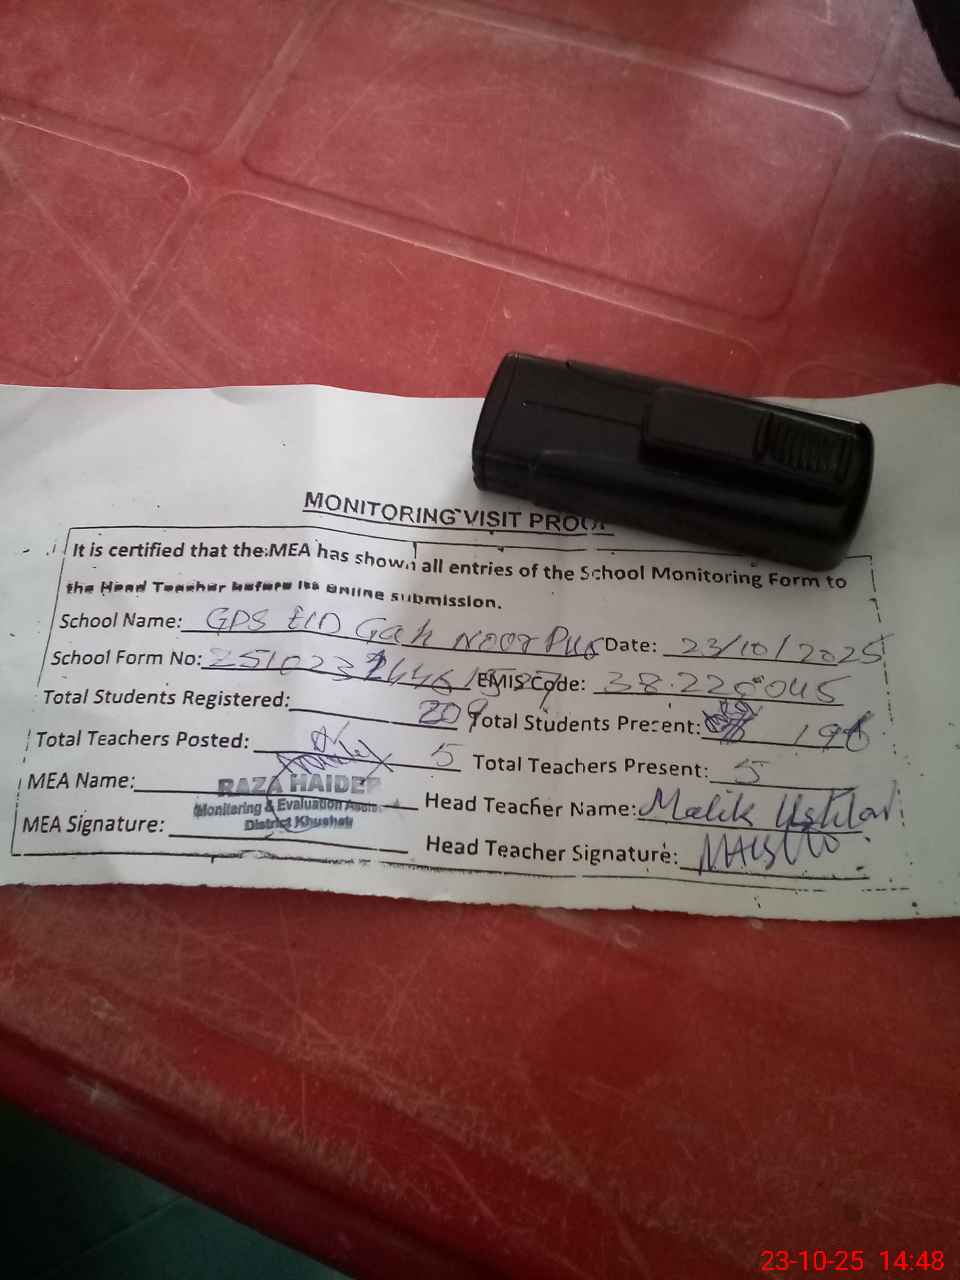 MONITORING VISIT PROOF
It is certified that the MEA has shown all entries of the School Monitoring Form to
the Head Teacher before its online submission.
School Name: GPS EID Gah Noor Pur Date: 23/10/2025
School Form No: EMIS Code: 38220045
Total Students Registered: 209 Total Students Present: 196
Total Teachers Posted: 5 Total Teachers Present: 5
MEA Name: RAZA HAIDER Head Teacher Name: Malik
Monitoring & Evaluation Assis.
District Khushab
MEA Signature: Head Teacher Signature:
23-10-25 14:48